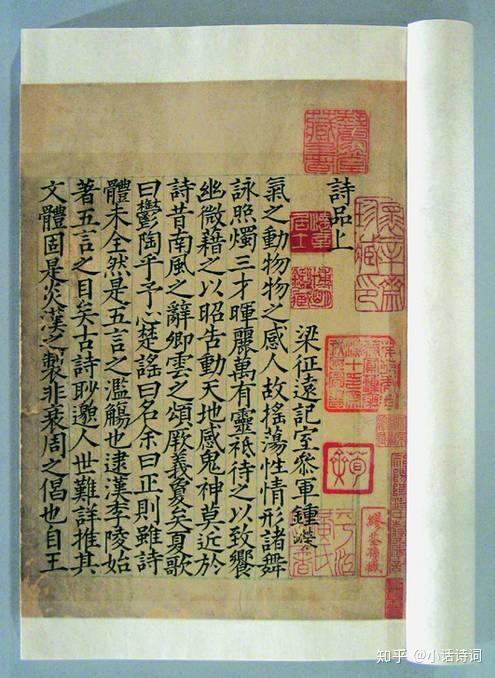 詩品上
梁征遠記室參軍鍾嶸
氣之動物物之感人故搖蕩性情形諸舞
詠照燭三才暉麗萬有靈祇待之以致饗
幽微藉之以昭告動天地感鬼神莫近於
詩昔南風之辭卿雲之頌厥義敻矣夏歌
曰鬱陶乎予心楚謠曰名余曰正則雖詩
體未全然是五言之濫觴也逮漢李陵始
著五言之目矣古詩眇邈人世難詳推其
文體固是炎漢之製非衰周之倡也自王
知乎 @小话诗词